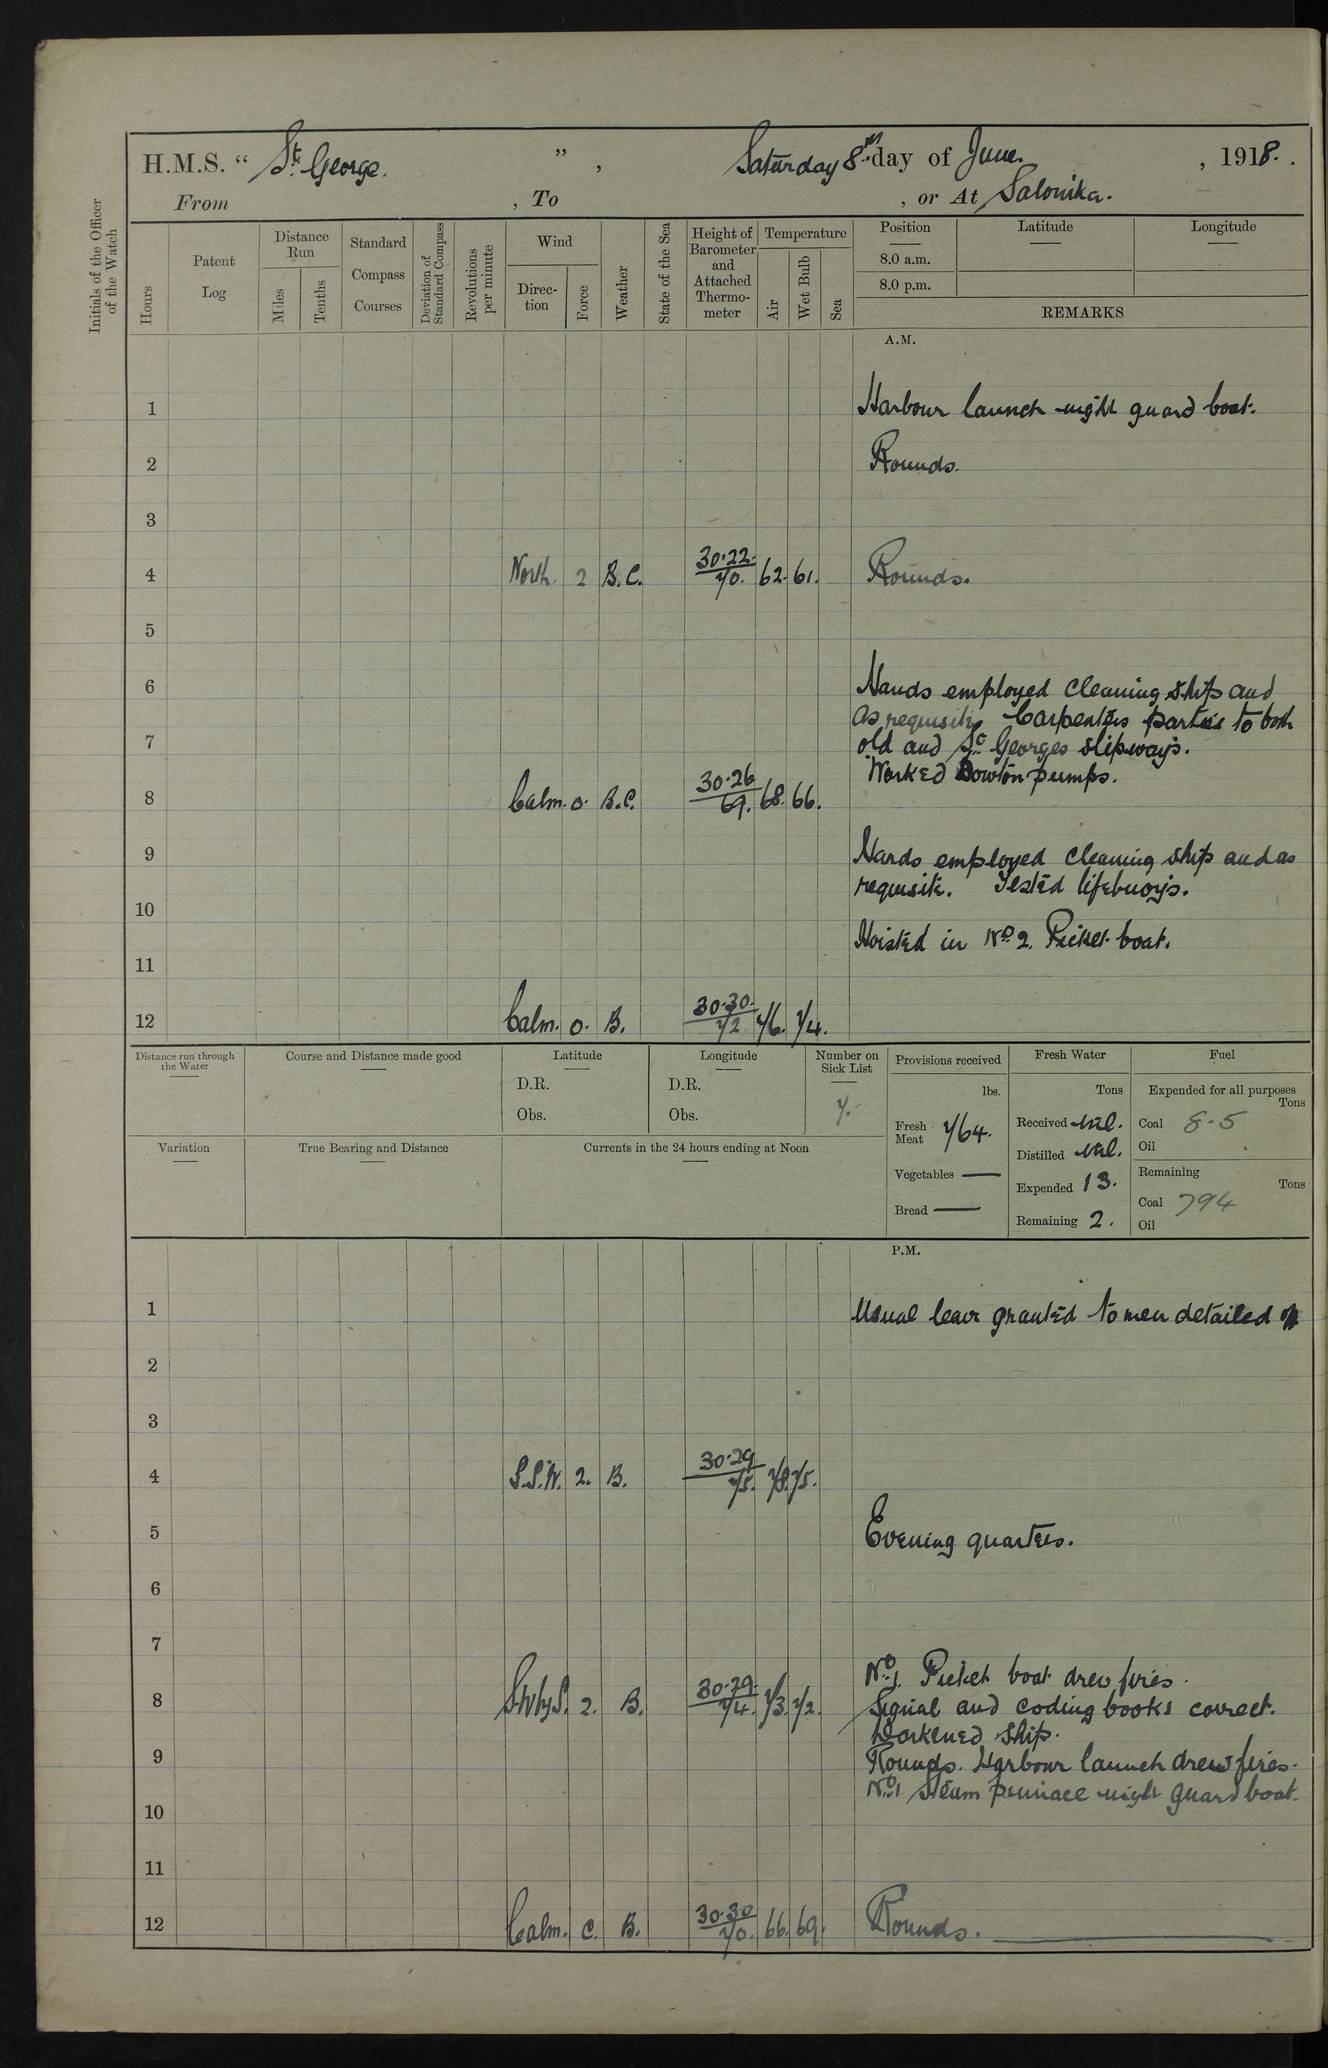 H.M.S. “ St. George. ” , Saturday 8th day of June. , 1918.
From , To , or At Salonika.
Initials of the Officer of the Watch
Hours
Patent Log
Distance Run
Miles
Tenths
Standard Compass Courses
Deviation of Standard Compass
Revolutions per minute
Wind
Direc-tion
Force
Weather
State of the Sea
Height of Barometer and Attached Thermo-meter
Temperature
Air
Wet Bulb
Sea
Position
8.0 a.m.
8.0 p.m.
Latitude
Longitude
REMARKS
A.M.
1 Harbour launch night guard boat.
2 Rounds.
3
4 North. 2 B.C. 30.22. 70. 62. 61. Rounds.
5
6 Hands employed cleaning ship and
as requisite, Carpenters parties to both
7 old and St. Georges slipways.
Worked Downton pumps.
8 Calm. 0. B.C. 30.26 69. 68. 66.
9 Hands employed cleaning ship and as
requisite. Tested lifebuoys.
10
Hoisted in No 2. Picket boat.
11
12 Calm. 0. B. 30.30. 72 76. 74.
Distance run through the Water
Course and Distance made good
Latitude
D.R.
Obs.
Longitude
D.R.
Obs.
Number on Sick List
7.
Provisions received
lbs.
Fresh Meat 764.
Vegetables —
Bread —
Fresh Water
Tons
Received Nil.
Distilled Nil.
Expended 13.
Remaining 2.
Fuel
Expended for all purposes
Tons
Coal 8.5
Oil
Remaining
Tons
Coal 794
Oil
Variation
True Bearing and Distance
Currents in the 24 hours ending at Noon
P.M.
1 Usual leave granted to men detailed
2
3
4 S.S.W. 2. B. 30.29 75. 78. 75.
5 Evening quarters.
6
7
No 1. Picket boat drew fires.
8 SWbyS. 2. B. 30.29. 74. 73. 72. Signal and coding books correct.
Darkened ship.
9 Rounds. Harbour launch drew fires.
No 1 steam pinnace night guard boat.
10
11
12 Calm. C. B. 30.30 70. 66. 69. Rounds.